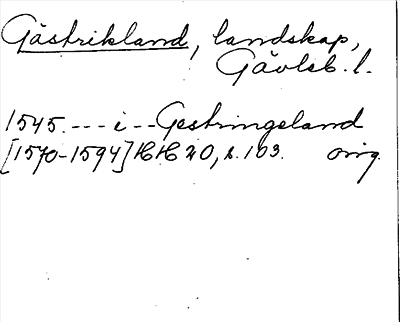 Gästrikland, landskap,
Gävleb. l.
1545. --- i -- Gestringeland
[1570-1594] HH 20, s. 103. orig.